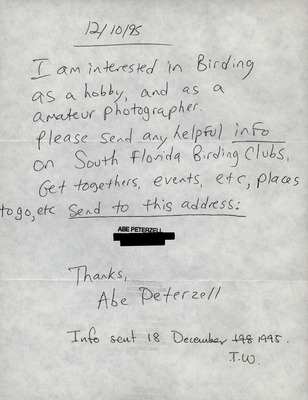 12/10/95
I am interested in Birding
as a hobby, and as a
amateur photographer.
please send any helpful info
on South Florida Birding Clubs,
Get togethers, events, etc, places
to go, etc Send to this address:
ABE PETERZELL
Thanks,
Abe Peterzell
Info sent 18 December 1995.
T.W.